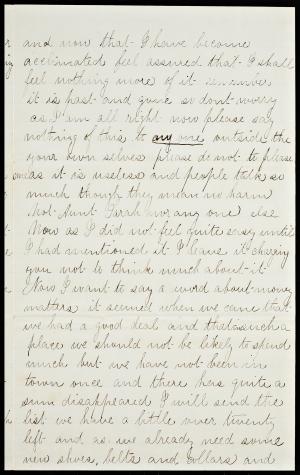 and now that I have become
acclimated feel assured that I shall
feel nothing more of it remember
it is past and gone so dont worry
as I am all right now please say
nothing of this to any one outside the
your own selves please do not to please
me as it is useless and people talk so
much though they mean no harm
Not Aunt Sarah nor any one else
Now as I did not feel quite easy until
I had mentioned it I leave it charging
you not to think much about it
Now I want to say a word about money
matters it seemed when we came that
we had a good deal and that in such a
place we should not be likely to spend
much but we have not been in
town once and there has quite a
sum disappeared I will send the
list we have a little over twenty
left and as we already need some
new shoes, belts and collars and